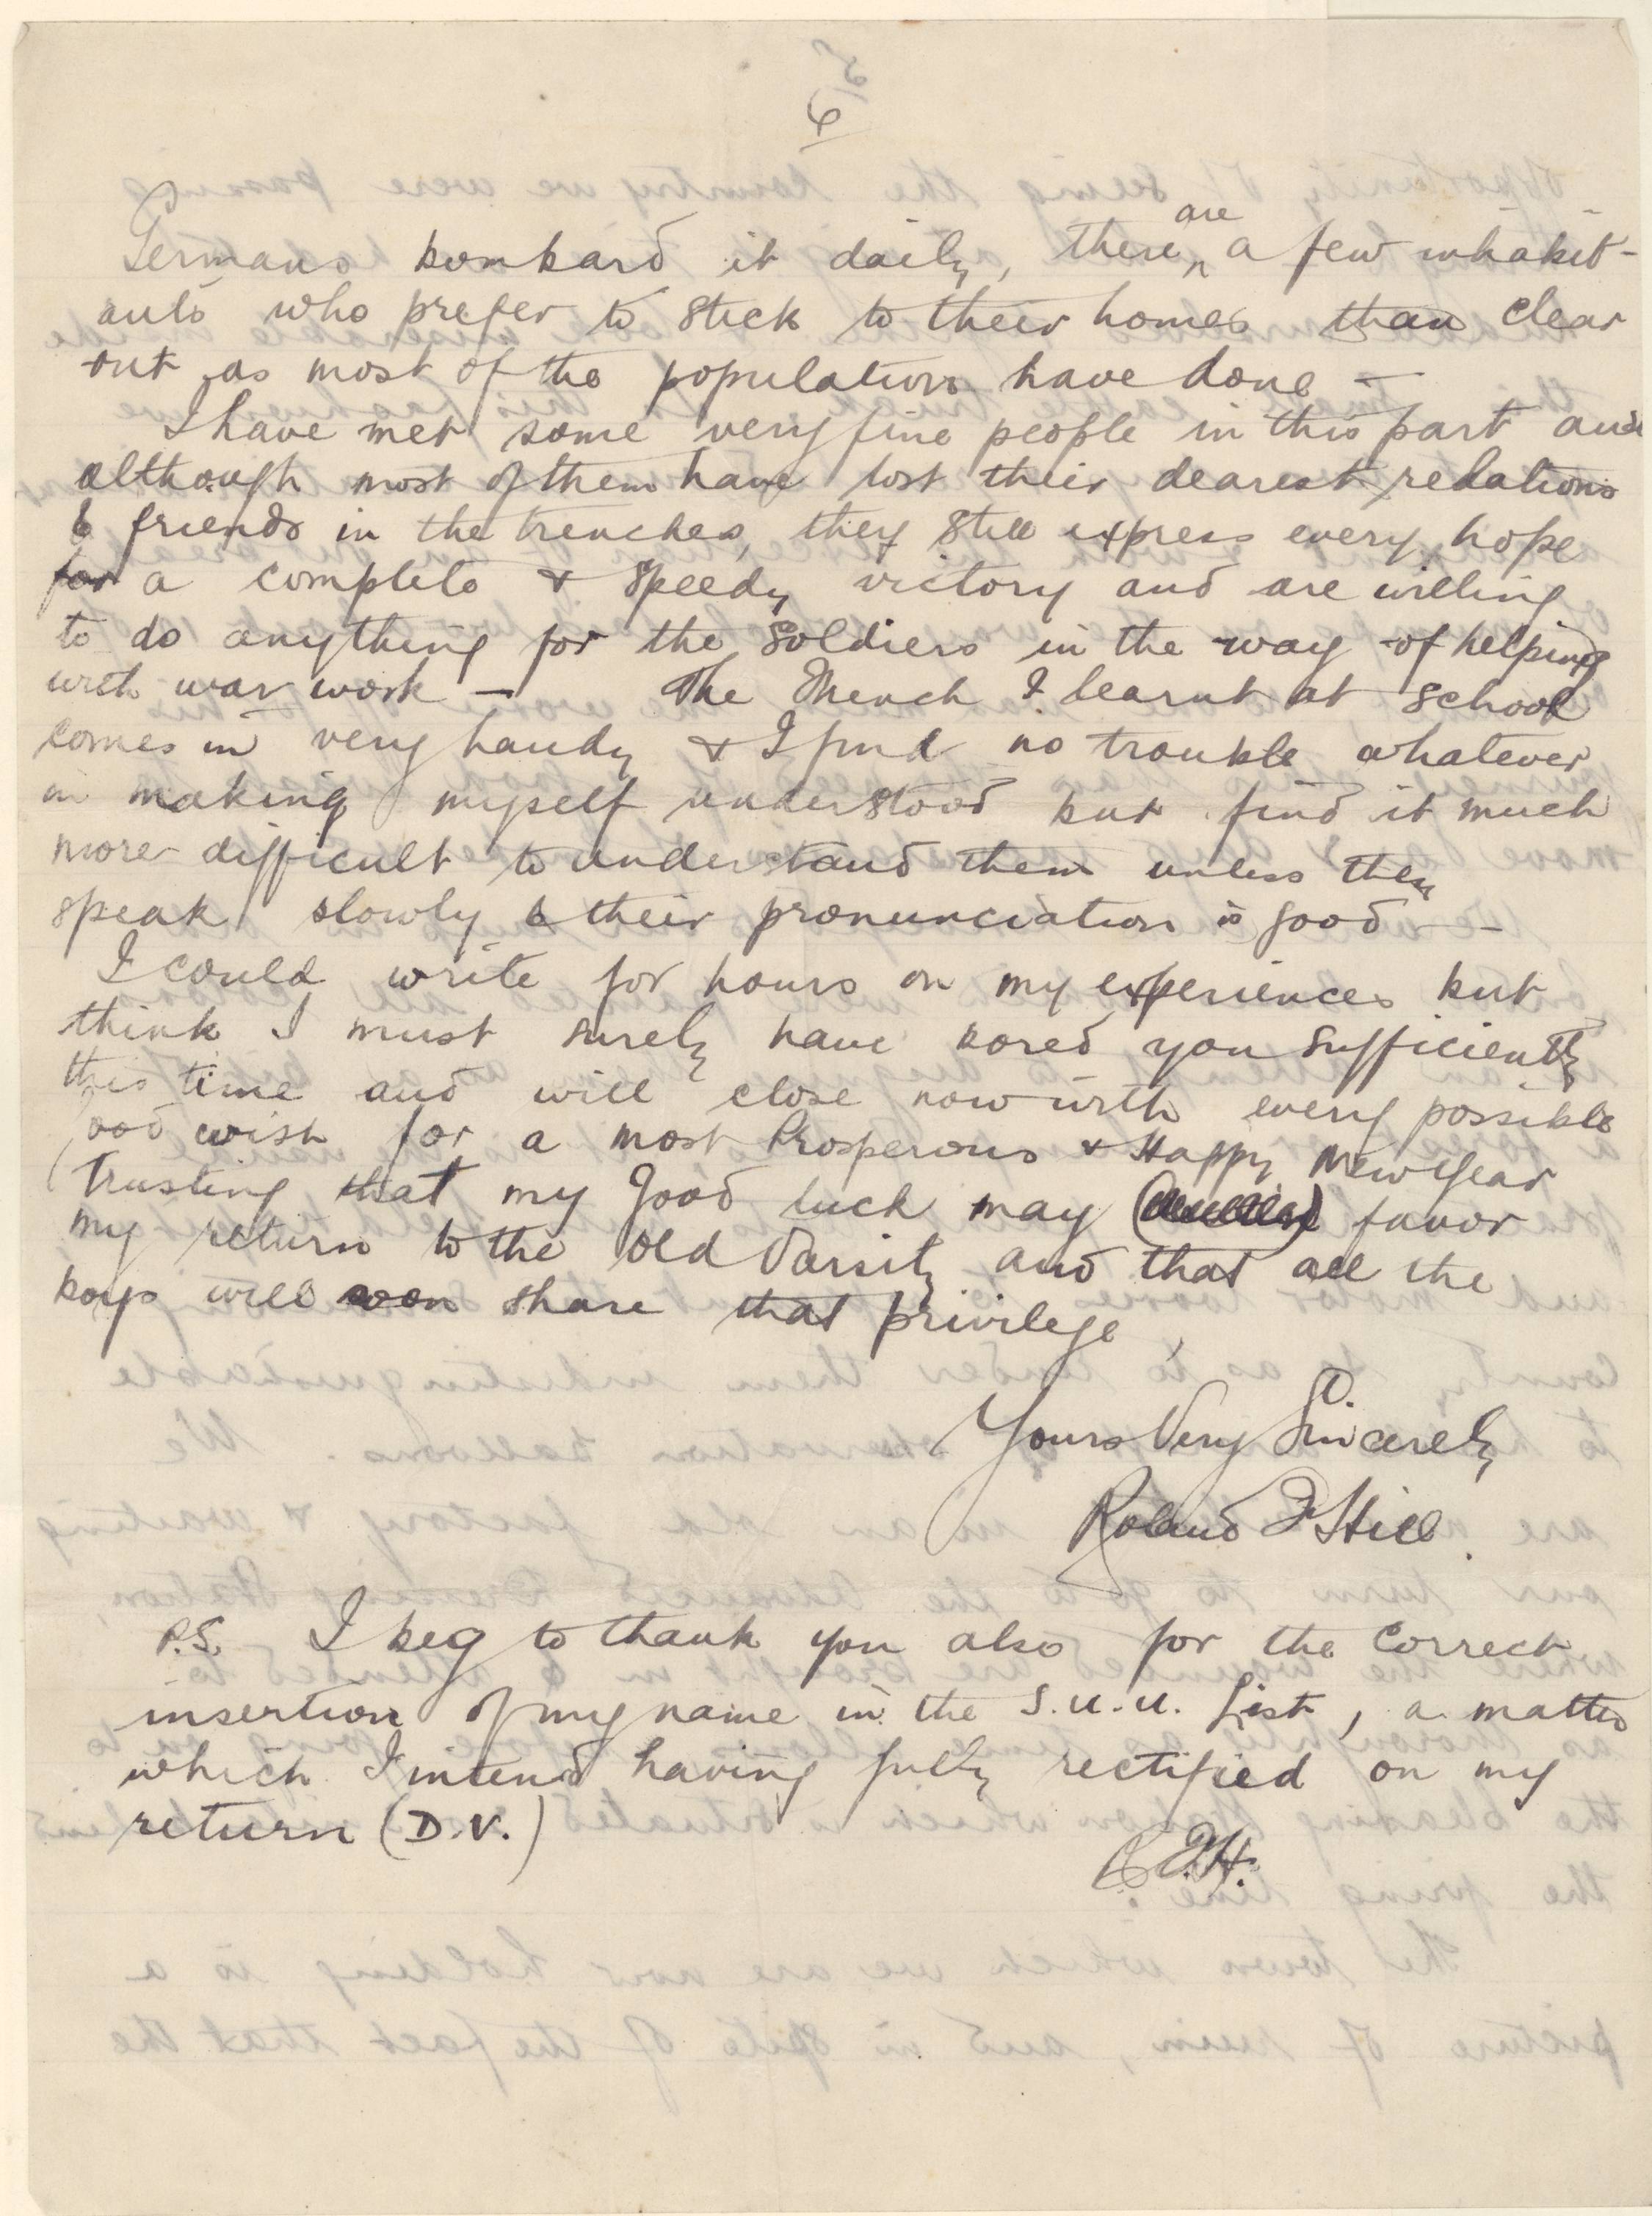 6
Germans bombard it daily, there are a few inhabit-
ants who prefer to stick to their homes than clear
out as most of the population have done –
I have met some very fine people in this part and
although most of them have lost their dearest relations
& friends in the trenches, they still express every hope
for a complete & speedy victory and are willing
to do anything for the soldiers in the way of helping
with war work – The French I learnt at school
comes in very handy & I find no trouble whatever
in making myself understood but find it much
more difficult to understand them unless they
speak slowly & their pronunciation is good –
I could write for hours on my experiences but
think I must surely have bored you sufficiently
this time and will close now with every possible
good wish for a most Prosperous & Happy New Year
Trusting that my good luck may favor
my return to the old Varsity and that all the
boys will soon share that privilege,
Yours Very Sincerely
Roland F Hill.
P.S. I beg to thank you also for the correct
insertion of my name in the S.U.U. List, a matter
which I intend having fully rectified on my
return (D.V.)
F.H.